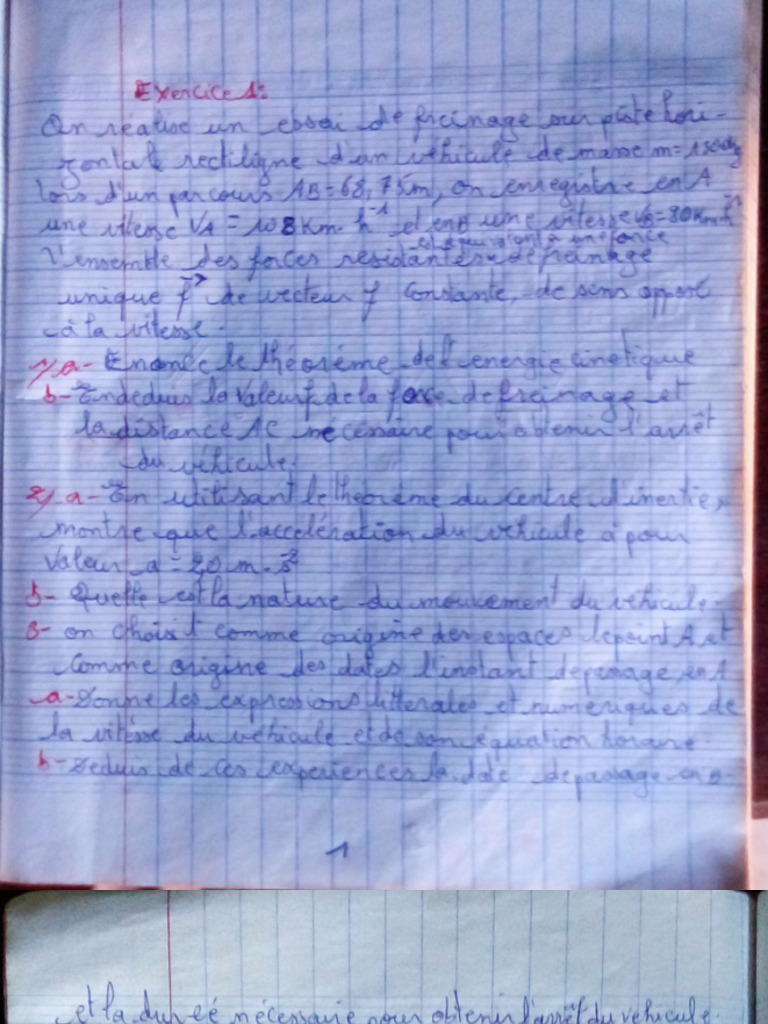 Exercice 1:
On réalise un essai de freinage sur piste hori-
zontale rectiligne d'un véhicule de masse m=1500kg
lors d'un parcours AB=68,75m, on enregistre en A
une vitesse VA = 108 km.h⁻¹ et en B une vitesse VB=80km.h⁻¹
L'ensemble des forces résistantes de freinage
et équivalent à une force
unique f⃗ de vecteur f constante, de sens opposé
à la vitesse.
1) a- Enonce le théorème de l'énergie cinétique
b- En deduis la valeur f de la force de freinage et
la distance AC necessaire pour obtenir l'arrêt
du véhicule.
2) a- En utilisant le théorème du centre d'inertie,
montre que l'accélération du véhicule a pour
valeur a = 20 m.s⁻²
b- Quelle est la nature du mouvement du véhicule.
3- on choisit comme origine des espaces le point A et
comme origine des dates l'instant de passage en A
a- Donne les expressions litterales et numériques de
la vitesse du véhicule et de son équation horaire.
b- Deduis de ces experiences la date de passage en B.
1
et la dureé nécessaire pour obtenir l'arrêt du véhicule.